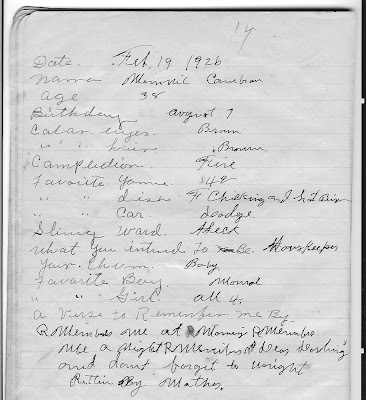 14
Date. Feb. 19 1926
Name Minnie
age 38
Birthday august 7
Calar eyes. Brown
" " hair. Brown
Complection Fire
Favorite Game 42
" " dish F Chicking and
" " Car. dodge
Slang Ward. Heck
what you intend to Be. Housekeeper
Your Chum. Baby
Favorite Boy. Monrad
" " Girl all 4.
a Verse to Remember me By
Remember me at Morning Remember
me a Night Remember Dear Darling
and dont forget to wright
Ritten By Mother.